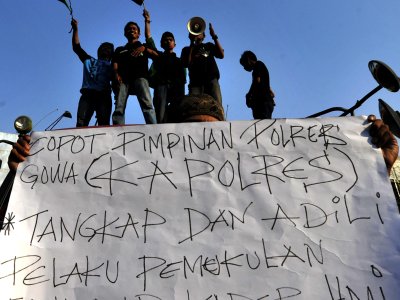 COPOT PIMPINAN POLRES
GOWA (KAPOLRES)
* TANGKAP DAN ADILI
PELAKU PEMUKULAN